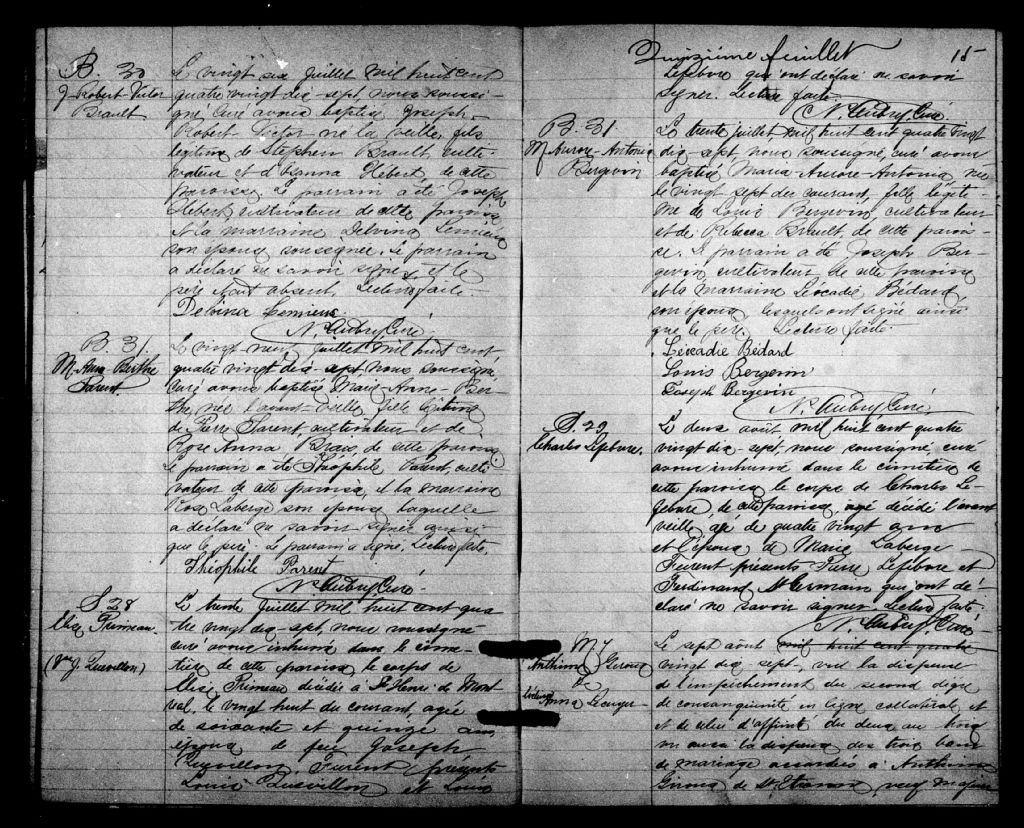 B. 30
J. Robert Victor
Brault
Le vingt six juillet mil huit cent
quatre vingt dix-sept, nous soussi-
gné, curé avons baptisé Joseph-
Robert Victor né la veille, fils
legitime de Stephen Brault, culti-
vateur et d'Exanna Hébert de cette
paroisse. Le parrain a été Joseph
Hébert cultivateur de cette paroisse
et la marraine Delvina Lemieux
son épouse soussignée. Le parrain
a déclaré ne savoir signer et le
père était absent. Lecture faite
Delvina Lemieux
N. Aubry Curé
B. 31.
M. Anne Berthe
Parent.
Le vingt-neuf juillet mil huit cent
quatre vingt dix-sept nous soussigné
curé avons baptisé Marie-Anne-Ber-
the, née l'avant-veille, fille légitime
de Pierre Parent, cultivateur et de
Rose Anna Brais, de cette paroisse
le parrain a été Théophile Parent, culti
vateur de cette paroisse, et la marraine
Rose Laberge son épouse laquelle
a déclaré ne savoir signer ainsi
que le père. Le parrain a signé. Lecture faite.
Théophile Parent
N. Aubry Curé
S. 28
Elise Primeau.
(Vve J. Quevillon)
Le trente juillet mil huit cent qua
tre vingt dix-sept, nous soussigné
curé avons inhumé dans le cime-
tière de cette paroisse le corps de
Elise Primeau décédée à St Henri de Mont
réal, le vingt huit du courant, agée
de soixante et quinze ans,
épouse de feu Joseph
Quevillon. Furent présents
Louis Quevillon et Louis
Quinzième feuillet 15
Lefebvre qui ont déclaré ne savoir
signer. Lecture faite
N. Aubry Curé.
B. 31.
M. Aurore-Antonia
Bergevin
Le trente juillet mil huit cent quatre vingt
dix-sept, nous soussigné, curé avons
baptisé Maria-Aurore-Antonia, née
le vingt sept du courant, fille légiti-
me de Louis Bergevin, cultivateur
et de Rebecca Brault, de cette parois-
se. Le parrain a été Joseph Ber-
gevin cultivateur de cette paroisse
et la marraine Léocadie Bédard
son épouse, lesquels ont signé ainsi
que le père. Lecture faite
Léocadie Bédard
Louis Bergevin
Joseph Bergevin
N. Aubry Curé
S. 29
Charles Lefebvre.
Le deux août mil huit cent quatre
vingt dix-sept, nous soussigné, curé
avons inhumé dans le cimetière de
cette paroisse le corps de Charles Le-
febvre, de cette paroisse, décédé l'avant
veille, agé de quatre vingt ans
et l'époux de Marie Laberge
Furent présents Pierre Lefebvre et
Ferdinand St Germain qui ont dé-
claré ne savoir signer. Lecture faite.
N. Aubry Curé
M 7
Anthime Giroux
&
Anna Lecuyer
Le sept août mil huit cent quatre
vingt dix sept, vu la dispense
de l'empêchement du second degré
de consanguinité en ligne collatérale et
et de celui d'affinité du deux au trois
vu aussi la dispense des trois bans
de mariage accordées à Anthime
Giroux de St Etienne, veuf majeur